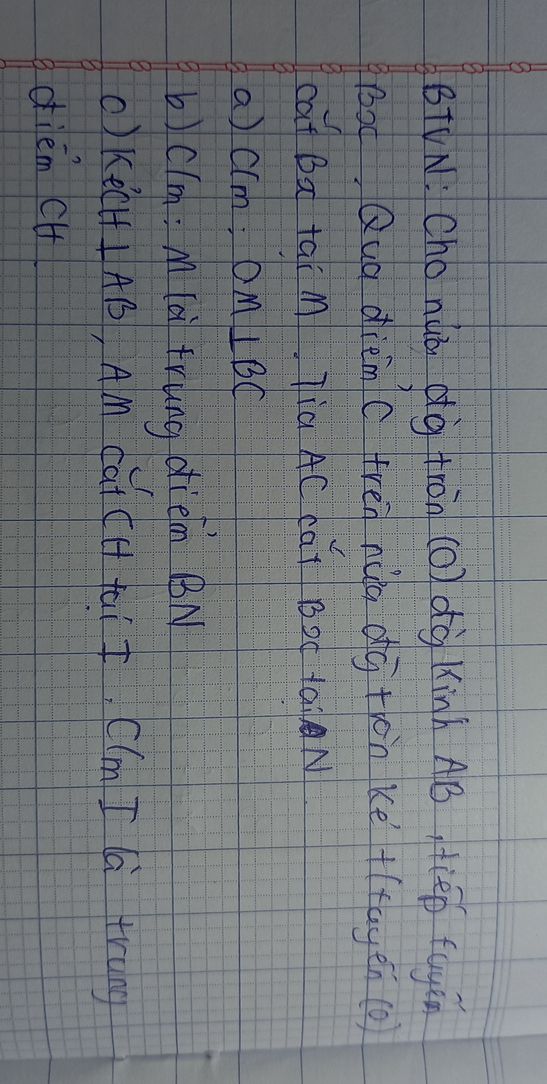 BTVN: Cho nửa đg tròn (O) đg kính AB, tiếp tuyến
Bx. Qua điểm C trên nửa đg tròn kẻ t/tuyến (O)
cắt Bx tại M. Tia AC cắt Bx tại N
a) C/m: OM⊥BC
b) C/m: M là trung điểm BN
c) Kẻ CH⊥AB, AM cắt CH tại I. C/m I là trung
điểm CH.